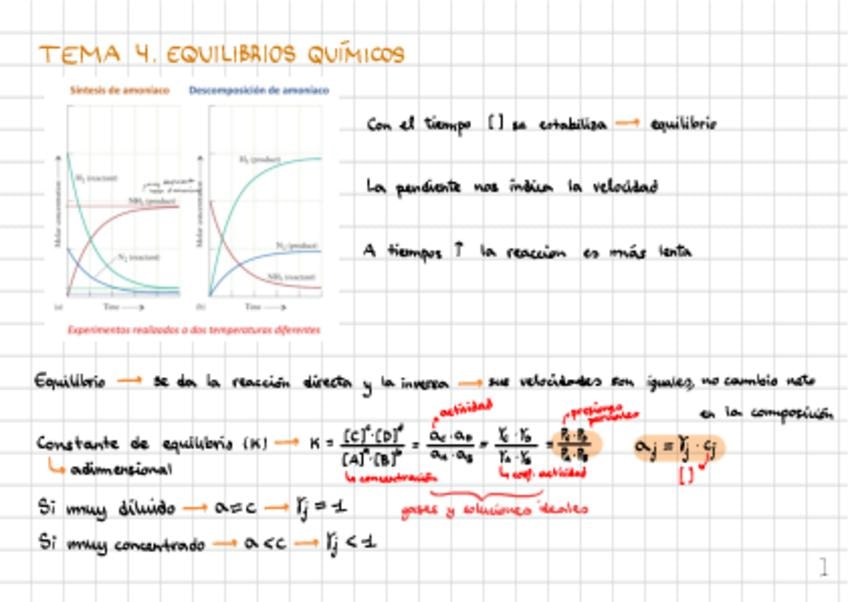 TEMA 4. EQUILIBRIOS QUÍMICOS
Síntesis de amoniaco
Descomposición de amoniaco
H₂ (reactant)
NH₃ (product)
N₂ (reactant)
Molar concentration
Time
(a)
H₂ (product)
N₂ (product)
NH₃ (reactant)
Molar concentration
Time
(b)
Experimentos realizados a dos temperaturas diferentes
Con el tiempo [ ] se estabiliza → equilibrio
La pendiente nos indica la velocidad
A tiempos ↑ la reacción es más lenta
Equilibrio → se da la reacción directa y la inversa → sus velocidades son iguales, no cambio neto
en la composición
actividad
presiones parciales
Constante de equilibrio (K) → K = [C]ᶜ·[D]ᵈ / [A]ᵃ·[B]ᵇ = a_C·a_D / a_A·a_B = γ_C·γ_D / γ_A·γ_B = P_C·P_D / P_A·P_B
a_j = γ_j · c_j
[ ]
↳ adimensional
↳ concentración
↳ coef. actividad
gases y soluciones ideales
Si muy diluido → a=c → γj = 1
Si muy concentrado → a<c → γj < 1
1